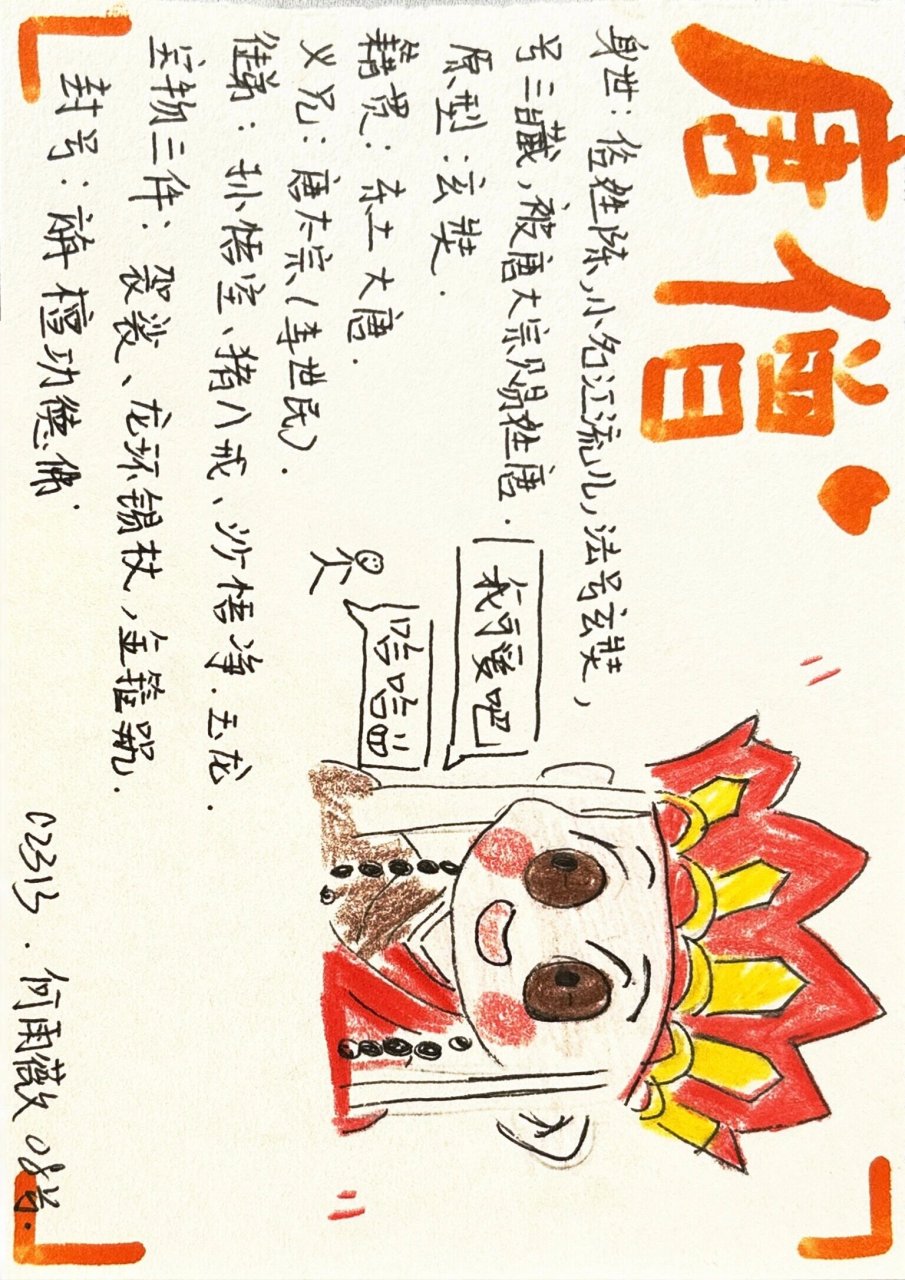 唐僧
身世：俗姓陈，小名江流儿，法号玄奘，
号三藏，被唐太宗赐姓唐．
原型：玄奘．
籍贯：东土大唐．
义兄：唐太宗（李世民）．
徒弟：孙悟空、猪八戒、沙悟净．玉龙．
宝物三件：袈裟、龙环锡杖，金箍咒．
封号：旃檀功德佛．
我可爱吧
哈哈
02313．何雨薇 08